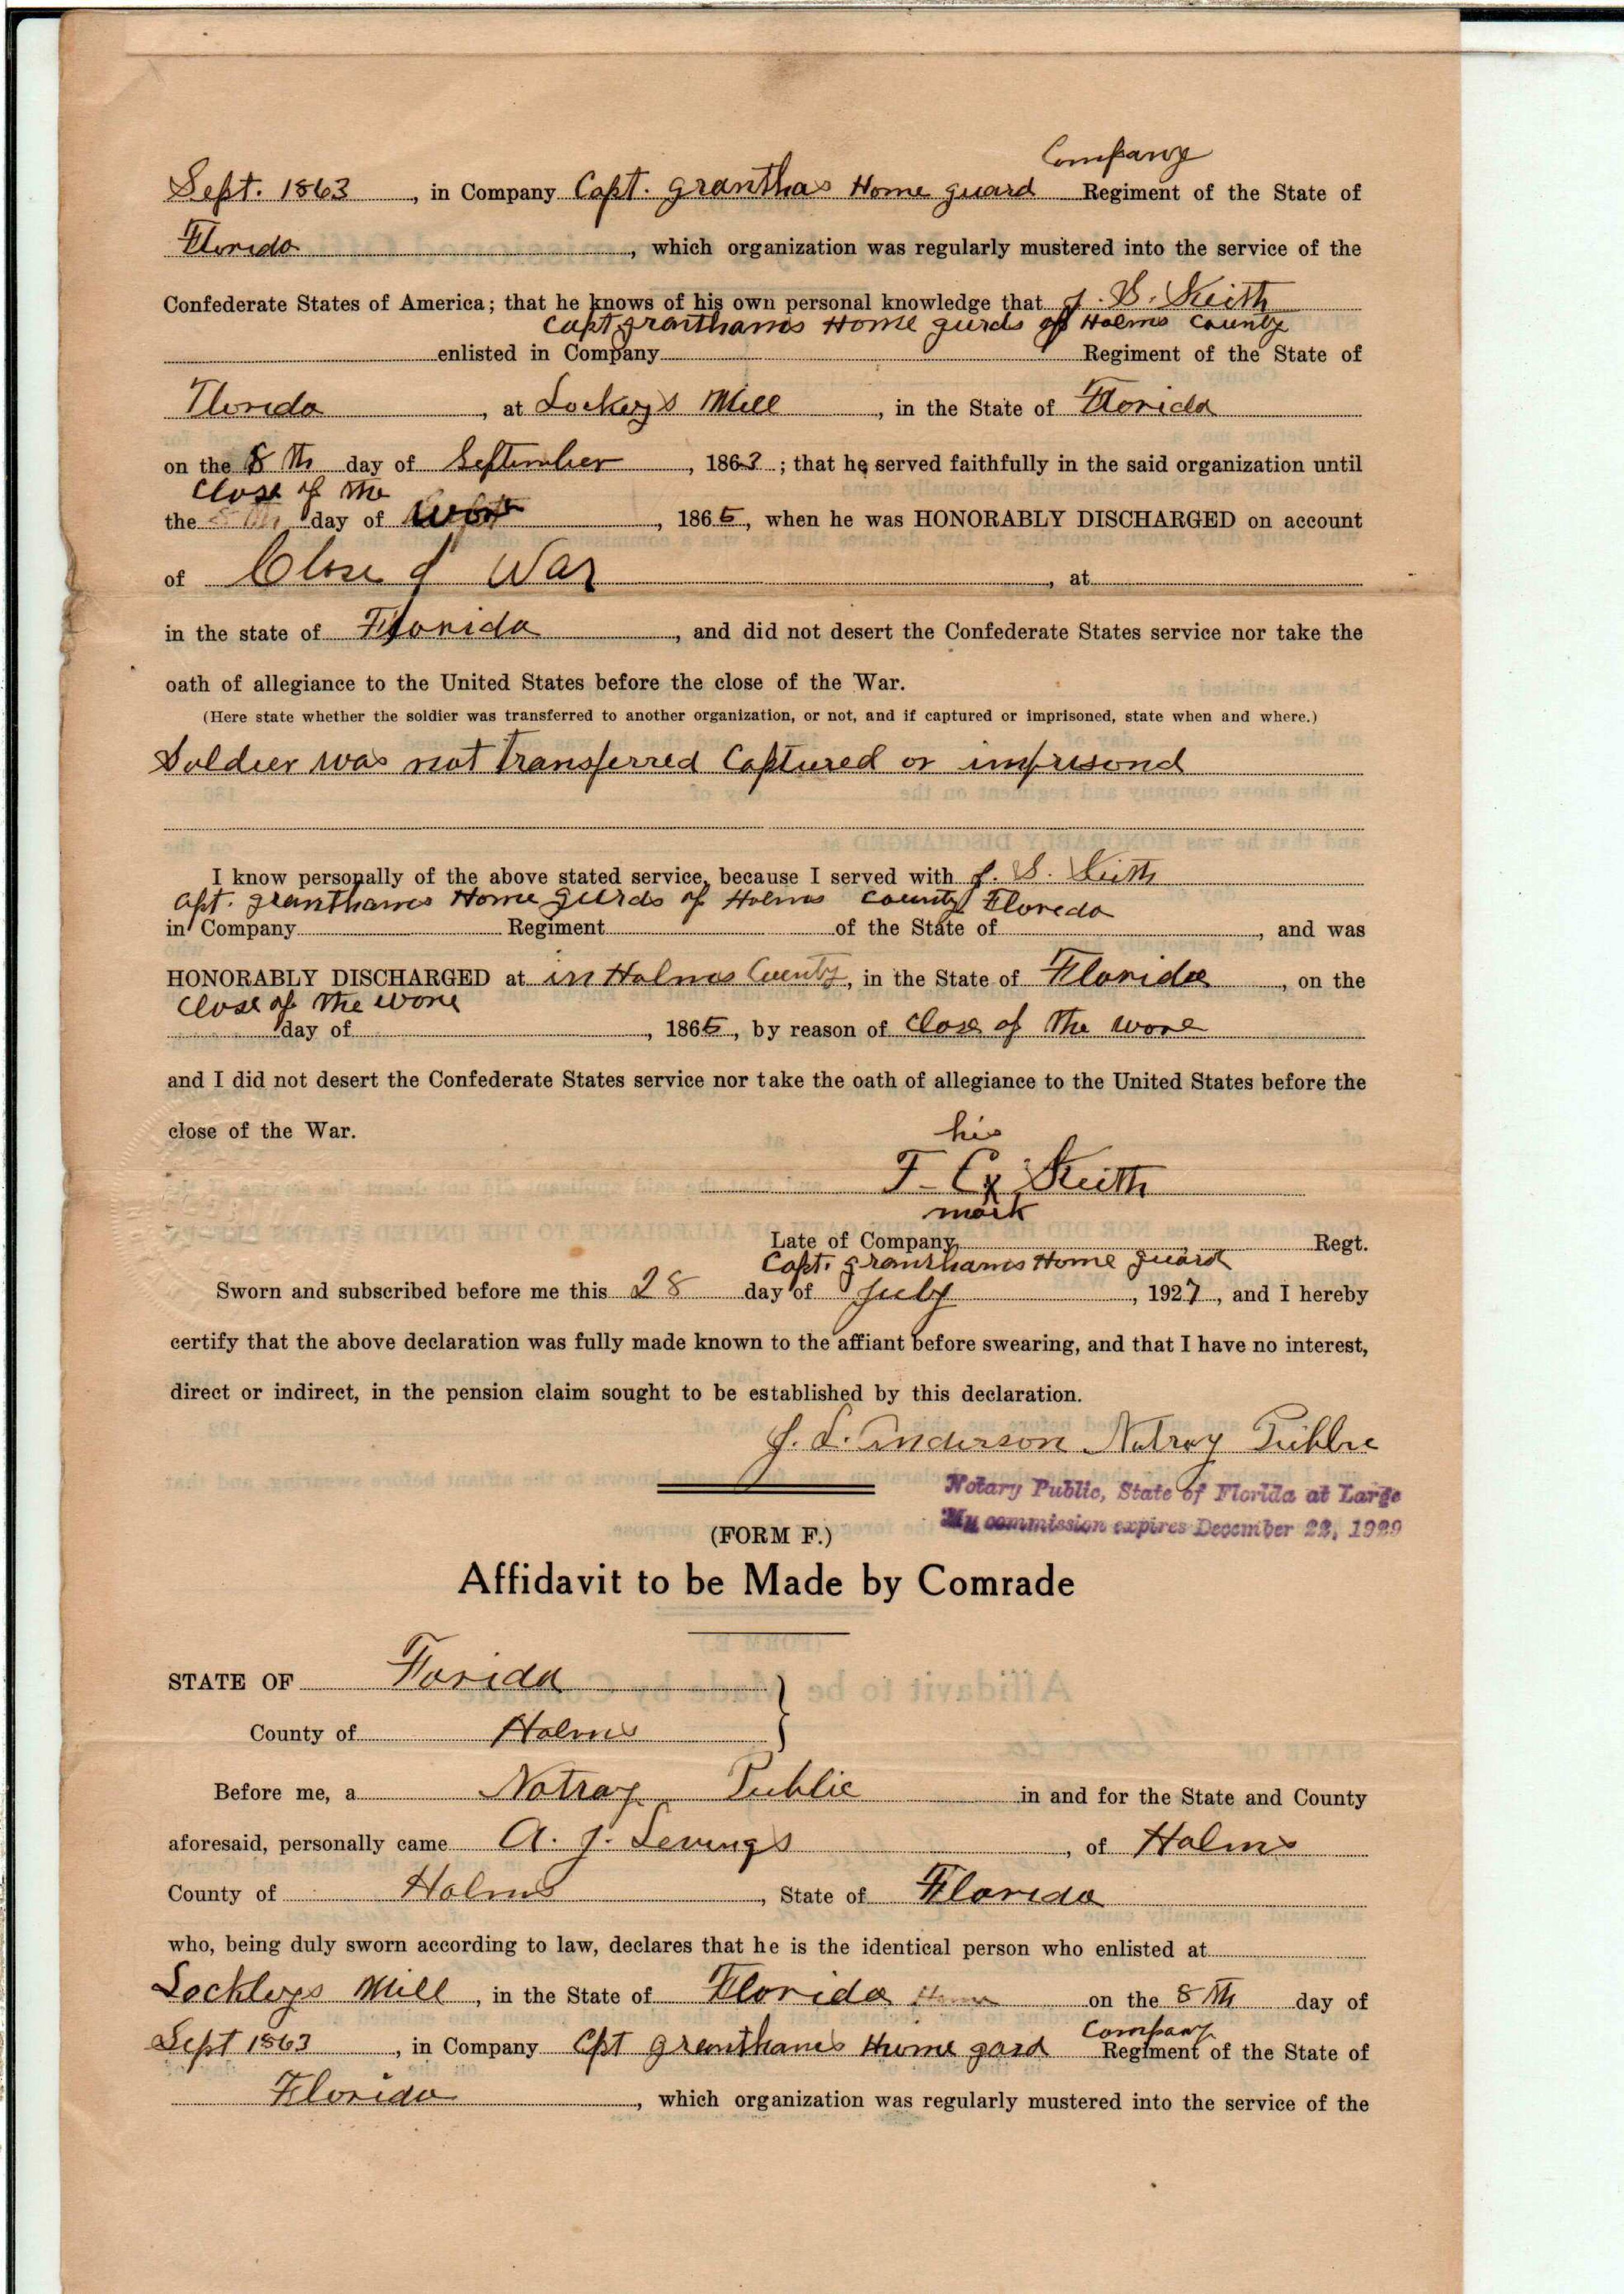 Company
Sept. 1863, in Company Capt. granthas Home guard Regiment of the State of
Florida, which organization was regularly mustered into the service of the
Confederate States of America; that he knows of his own personal knowledge that J. S. Keith
Capt granthams Home gurds of Holms County
enlisted in Company Regiment of the State of
Florida, at Lockeys Mill, in the State of Florida
on the 8 Th day of September, 1863; that he served faithfully in the said organization until
Close of the
the day of, 1865, when he was HONORABLY DISCHARGED on account
of Close of War, at
in the state of Florida, and did not desert the Confederate States service nor take the
oath of allegiance to the United States before the close of the War.
(Here state whether the soldier was transferred to another organization, or not, and if captured or imprisoned, state when and where.)
Soldier was not Transferred Captured or imprisond
I know personally of the above stated service, because I served with J. S. Keith
Capt. granthams Home gurds of Holms County Floreda
in Company Regiment of the State of, and was
HONORABLY DISCHARGED at in Holms County, in the State of Florida, on the
Close of The wore
day of, 1865, by reason of Close of The wore
and I did not desert the Confederate States service nor take the oath of allegiance to the United States before the
close of the War.
his
F. C x Keith
mark
Late of Company, Regt.
Capt. granthams Home guard
Sworn and subscribed before me this 28 day of July, 1927, and I hereby
certify that the above declaration was fully made known to the affiant before swearing, and that I have no interest,
direct or indirect, in the pension claim sought to be established by this declaration.
J. L. Anderson Notray Public
Notary Public, State of Florida at Large
My commission expires December 22, 1929
(FORM F.)
Affidavit to be Made by Comrade
STATE OF Florida
County of Holms
Before me, a Notray Public in and for the State and County
aforesaid, personally came A. J. Levings, of Holms
County of Holms, State of Florida
who, being duly sworn according to law, declares that he is the identical person who enlisted at
Lockleys Mill, in the State of Florida on the 8 Th day of
Company
Sept 1863, in Company Cpt granthams Home gard Regiment of the State of
Florida, which organization was regularly mustered into the service of the